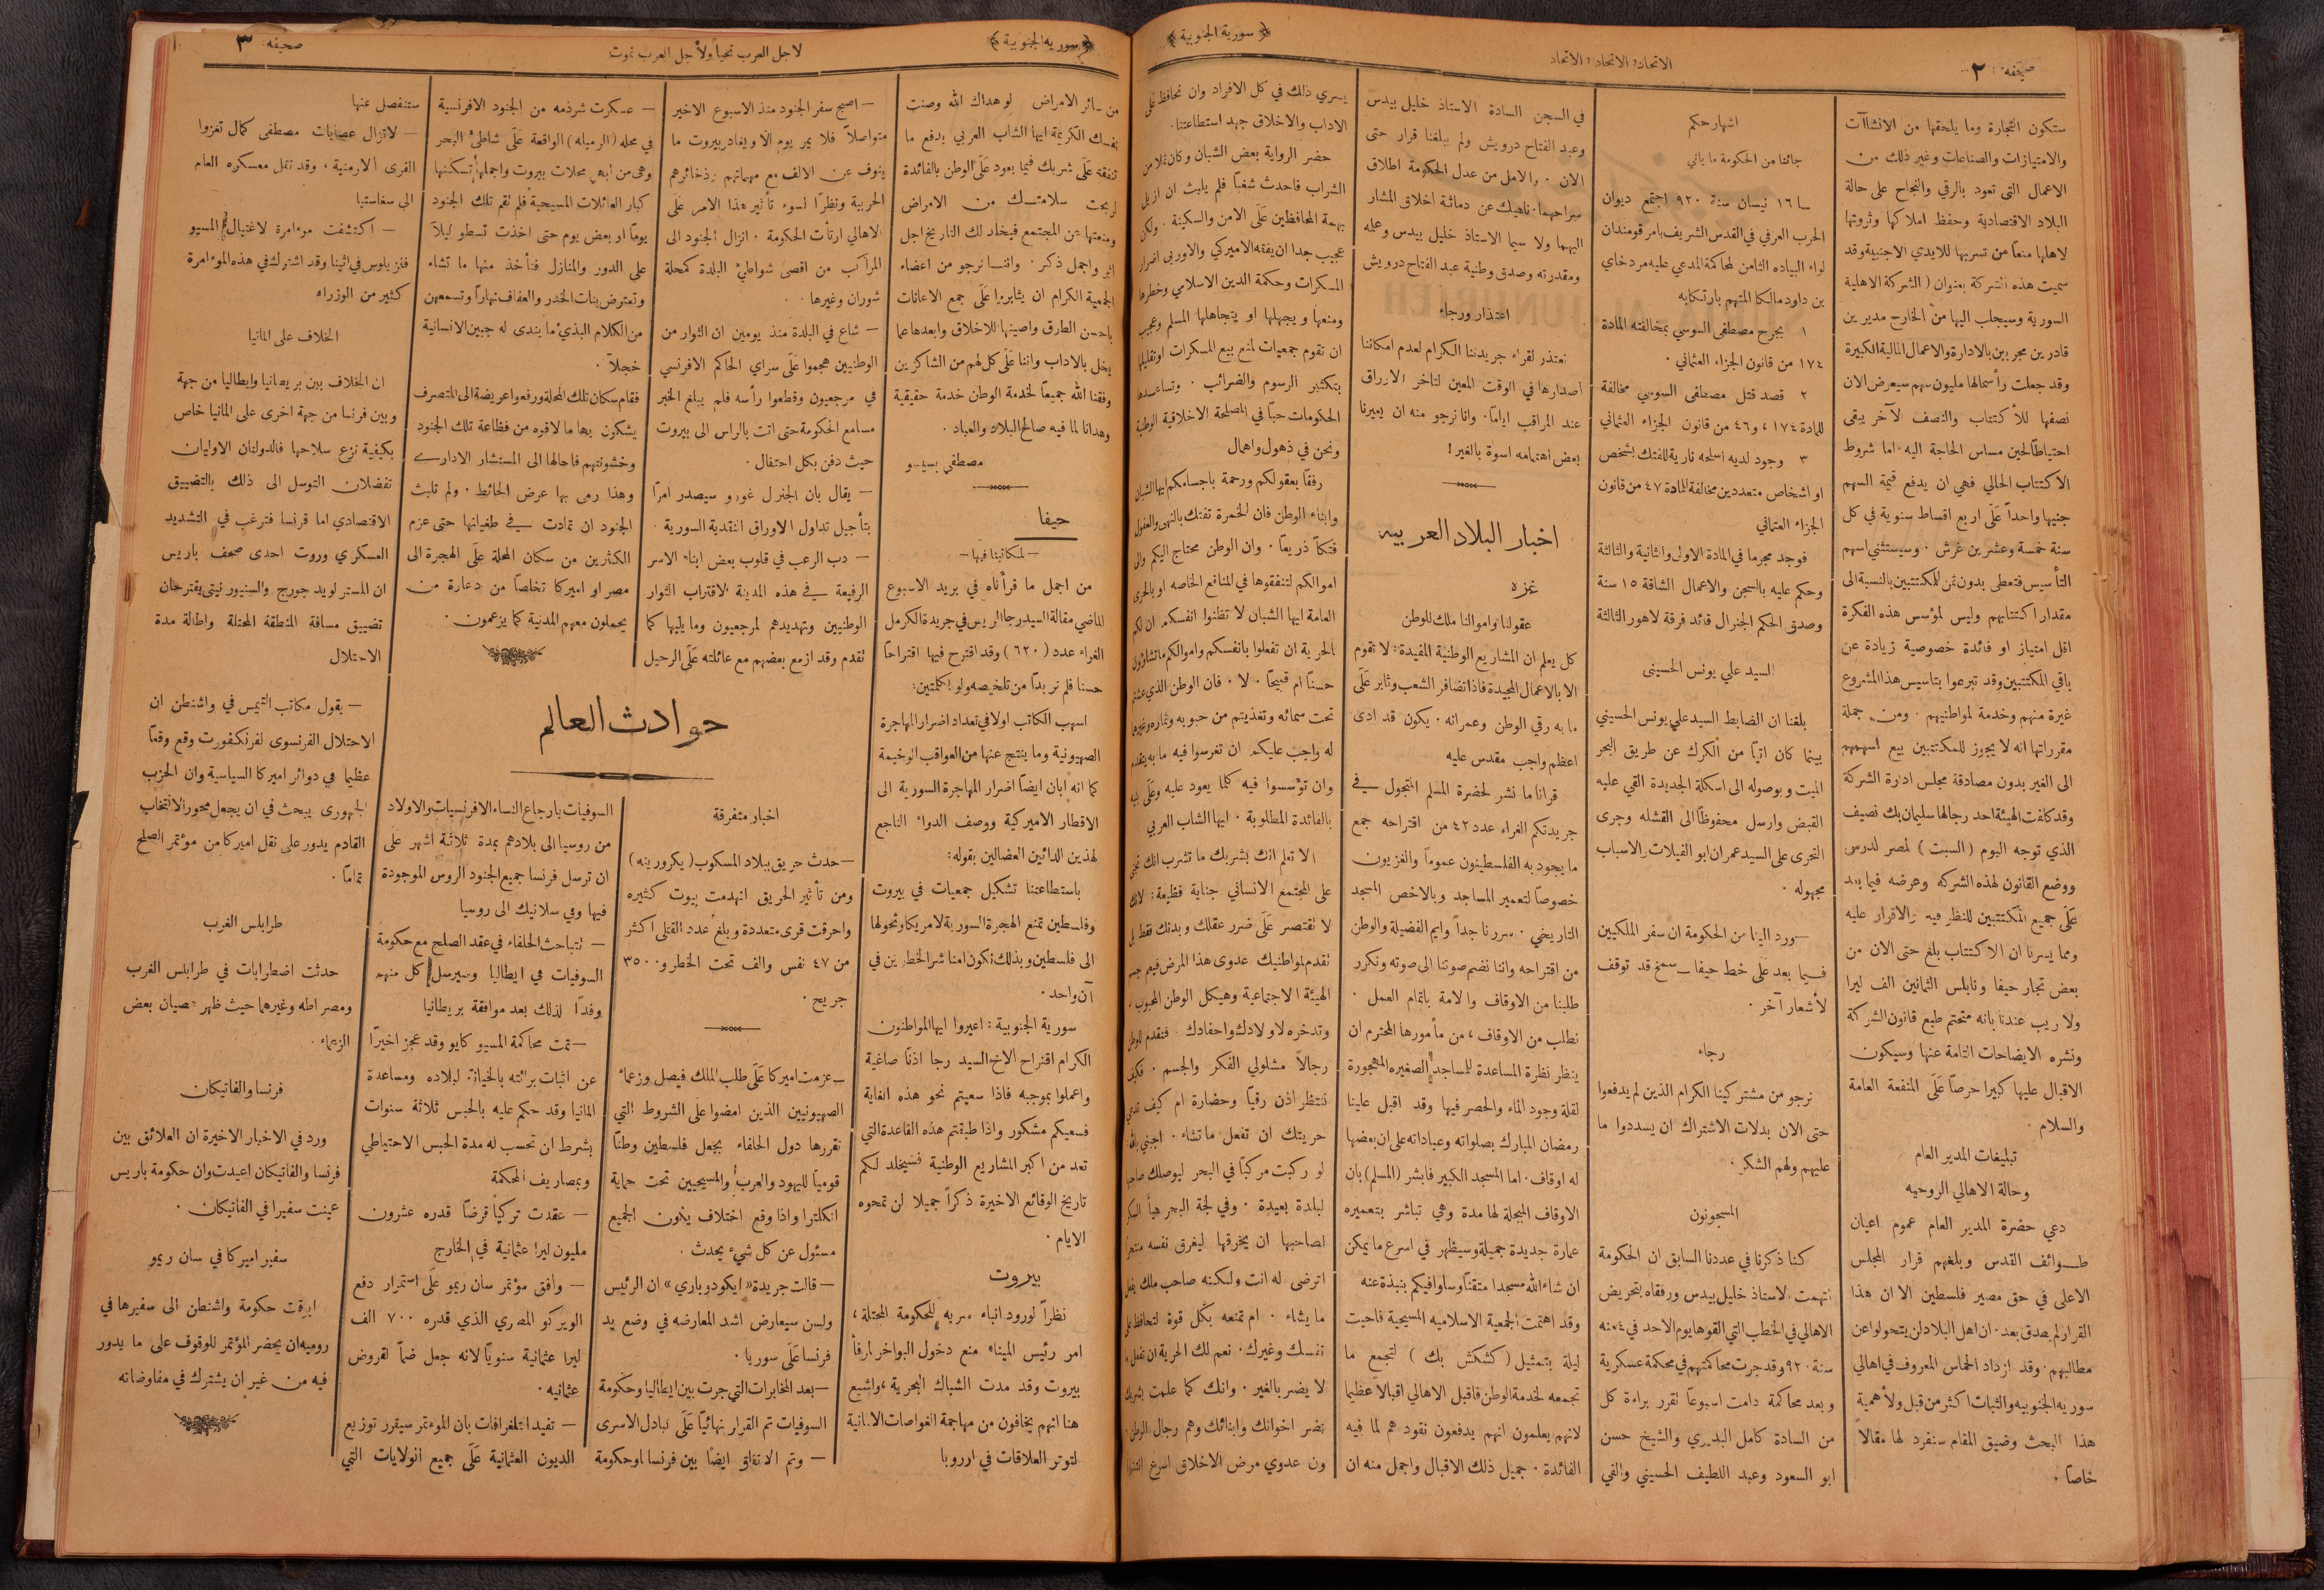 صحيفه: ٢
الاتحاد، الاتحاد، الاتحاد
﴿ سورية الجنوبية ﴾
ستكون التجارة وما يلحقها من الانشاآت
والامتيازات والصناعات وغير ذلك من
الاعمال التي تعود بالرقي والنجاح على حالة
البلاد الاقتصادية وحفظ املاكها وثروتها
لاهلها منعاً من تسربها للايدي الاجنبية وقد
سميت هذه الشركة بعنوان ( الشركة الاهلية
السورية وسيجلب اليها من الخارج مديرين
قادرين مجربين بالادارة والاعمال المالية الكبيرة
وقد جعلت رأسمالها مليون سهم سيعرض الان
نصفها للأكتتاب والنصف لآخر يبقى
احتياطاً لحين مساس الحاجة اليه · اما شروط
الاكتتاب الحالي فهي ان يدفع قيمة السهم
جنيها واحداً عَلَى اربع اقساط سنوية في كل
سنة خمسة وعشرين غرش · وسيستثني اسهم
التأسيس فتعطى بدون ثمن للمكتتبين بالنسبة الى
مقدار اكتتابهم وليس لمؤسس هذه الفكرة
اقل امتياز او فائدة خصوصية زيادة عن
باقي المكتتبين وقد تبرعوا بتاسيس هذا المشروع
غيرة منهم وخدمة لمواطنيهم · ومن جملة
مقرراتها انه لا يجوز للمكتتبين بيع اسهمهم
الى الغير بدون مصادقة مجلس ادارة الشركة
وقد كلفت الهيئة احد رجالها سليمان بك نصيف
الذي توجه اليوم ( السبت ) لمصر لدرس
ووضع القانون لهذه الشركه وعرضه فيما بعد
عَلَى جميع المكتتبين للنظر فيه والاقرار عليه
ومما يسرنا ان الاكتتاب بلغ حتى الان من
بعض تجار حيفا ونابلس الثمانين الف ليرا
ولا ريب عندنا بانه متحتم طبع قانون الشركة
ونشره الايضاحات التامة عنها وسيكون
الاقبال عليها كبيرا حرصاً عَلَى المنفعة العامة
والسلام ·
تبليغات المدير العام
وحالة الاهالي الروحيه
دعي حضرة المدير العام عموم اعيان
طوائف القدس وبلغهم قرار المجلس
الاعلى في حق مصير فلسطين الا ان هذا
القرار لم يصدق بعد · ان اهل البلاد لن يتحولوا عن
مطالبهم · وقد ازداد الحماس المعروف في اهالي
سوريه الجنوبيه والثبات اكثر من قبل ولأهمية
هذا البحث وضيق المقام سنفرد لها مقالاً
خاصاً ·
اشهار حكم
جائنا من الحكومة ما ياتي
سا ١٦ نيسان سنة ٩٢٠ اجتمع ديوان
الحرب العرفي في القدس الشريف بامر قومندان
لواء البياده الثامن لمحاكمة المدعي عليه مردخاي
بن داود مالكا المتهم بارتكابه
١ بجرح مصطفى السوسي بمخالفته المادة
١٧٤ من قانون الجزاء العثماني ·
٢ قصد قتل مصطفى السوسي مخالفة
للمادة ١٧٤ ، و٤٦ من قانون الجزاء العثماني
٣ وجود لديه اسلحه نارية للفتك بشخص
او اشخاص متعددين مخالفة المادة ٤٧ من قانون
الجزاء العثماني
فوجد مجرما في المادة الاولى والثانية والثالثة
وحكم عليه بالسجن والاعمال الشاقة ١٥ سنة
وصدق الحكم الجنرال قائد فرقة لاهور الثالثة
السيد علي يونس الحسيني
بلغنا ان الضابط السيد علي يونس الحسيني
بينما كان اتياً من الكرك عن طريق البحر
الميت وبوصوله الى اسكلة الجديدة القي عليه
القبض وارسل محفوظاً الى القشله وجرى
التحرى على السيد عمران ابو الفيلات والاسباب
مجهوله ·
— ورد الينا من الحكومة ان سفر الملكيين
فيما بعد على خط حيفا — سمخ قد توقف
لأشعار آخر ·
رجاء
نرجو من مشتركينا الكرام الذين لم يدفعوا
حتى الان بدلات الاشتراك ان يسددوا ما
عليهم ولهم الشكر ·
المسجونون
كنا ذكرنا في عددنا السابق ان الحكومة
اتهمت الاستاذ خليل بيدس ورفقاه بتحريض
الاهالي في الخطب التي القوها يوم الاحد في ٤ منه
سنة ٩٢٠ وقد جرت محاكمتهم في محكمة عسكرية
وبعد محاكمة دامت اسبوعاً تقرر براءة كل
من السادة كامل البديري والشيخ حسن
ابو السعود وعبد اللطيف الحسيني والقي
في السجن السادة الاستاذ خليل بيدس
وعبد الفتاح درويش ولم يبلغنا قرار حتى
الان · والامل من عدل الحكومة اطلاق
سراحهما · ناهيك عن دماثة اخلاق المشار
اليهما ولا سيما الاستاذ خليل بيدس وعمله
ومقدرته وصدق وطنية عبد الفتاح درويش
اعتذار ورجاء
نعتذر لقراء جريدتنا الكرام لعدم امكاننا
اصدارها في الوقت المعين لتاخر الاوراق
عند المراقب اياماً · وانا نرجو منه ان يعيرنا
بعض اهتمامه اسوة بالغير !
اخبار البلاد العربيه
غزه
عقولنا واموالنا ملك للوطن
كل يعلم ان المشاريع الوطنية المفيدة : لا تقوم
الا بالاعمال المجيدة فاذا تضافر الشعب وثابر عَلَى
ما به رقي الوطن وعمرانه · يكون قد ادى
اعظم واجب مقدس عليه
قرانا ما نشر لحضرة المسلم المتجول في
جريدتكم الغراء عدد ٤٢ من اقتراحه جمع
ما يجود به الفلسطينون عموماً والغزيون
خصوصاً لتعمير المساجد وبالاخص المسجد
التاريخي · سررنا جداً وايم الفضيلة والوطن
من اقتراحه واننا نضم صوتنا الى صوته ونكرر
طلبنا من الاوقاف والامة باتمام العمل ·
نطلب من الاوقاف ، من مأمورها المحترم ان
ينظر نظرة المساعدة للمساجد الصغيره المهجورة
لقلة وجود الماء والحصر فيها وقد اقبل علينا
رمضان المبارك بصلواته وعباداته على ان بعضها
له اوقاف · اما المسجد الكبير فابشر ( المسلم ) بان
الاوقاف المبجلة لها مدة وهي تباشر بتعميره
عمارة جديدة جميلة وسيظهر في اسرع ما يمكن
ان شاء الله مسجدا متقناً وساوافيكم بنبذة عنه
وقد اهتمت الجمعية الاسلاميه المسيحية فاحيت
ليلة بتمثيل ( كشكش بك ) لتجمع ما
تجمعه لخدمة الوطن فاقبل الاهالي اقبالا عظيما
لانهم يعلمون انهم يدفعون نقود هم لما فيه
الفائدة · جميل ذلك الاقبال واجمل منه ان
يسري ذلك في كل الافراد وان نحافظ عَلَى
الاداب والاخلاق جهد استطاعتنا ·
حضر الرواية بعض الشبان وكان ثملا من
الشراب فاحدث شغباً فلم يلبث ان ازيل
بهمة المحافظين عَلَى الامن والسكينة · ولكن
عجيب جدا ان يفقه الاميركي والاوربي اضرار
المسكرات وحكمة الدين الاسلامي وخطرها
ومنعها ويجهلها او يتجاهلها المسلم وعجيب
ان تقوم جمعيات لمنع بيع المسكرات او تقليلها
بتكثير الرسوم والضرائب · وتساعدها
الحكومات حباً في المصلحة الاخلاقية الوطنية
ونحن في ذهول واهمال
رفقاً بعقولكم ورحمة باجسامكم ايها الشبان
وابناء الوطن فان الخمرة تفتك بالنهى والعقول
فتكاً ذريعاً · وان الوطن محتاج اليكم والى
اموالكم لتنفقوها في المنافع الخاصه او بالحرى
العامة ايها الشبان لا تظنوا انفسكم ان لكم
الحرية ان تفعلوا بانفسكم واموالكم ما تشاؤون
حسناً ام قبيحاً · لا · فان الوطن الذي عشتم
تحت سمائه وتغذيتم من حبوبه وثماره وغيرها
له واجب عليكم ان تغرسوا فيه ما به يتقدم
وان تؤسسوا فيه كلما يعود عليه وعَلَى بنيه
بالفائدة المطلوبة · ايها الشاب العربي
الا تعلم انك بشربك ما تشرب انك تجني
على المجتمع الانساني جناية فظيعة : لانك
لا تقتصر عَلَى ضرر عقلك وبدنك فقط بل
تقدم لمواطنيك عدوى هذا المرض فيعم جسم
الهيئة الاجتماعية وهيكل الوطن المحبوب ·
وتدخره لاولادك واحفادك · فتقدم للوطن
رجالاً مشلولي الفكر والجسم · فكيف
ننتظر اذن رقياً وحضارة ام كيف تدعي
حريتك ان تفعل ما تشاء · اجبني بالله
لو ركبت مركباً في البحر ليوصلك صاحبه
لبلدة بعيدة · وفي لجة البحر هيأ السكر
لصاحبها ان يخرقها ليغرق نفسه منتحراً
اترضى له انت ولكنه صاحب ملك يفعل
ما يشاء · ام تمنعه بكل قوة لتحافظ على
نفسك وغيرك · نعم لك الحرية ان تفعل ما
لا يضر بالغير · وانك كما علمت بشربك
تضر اخوانك وابنائك وهم رجال الوطن ·
ون عدوي مرض الاخلاق اسرع انتقالها
﴿ سوريه الجنوبية ﴾
لاجل العرب نحيا ولأجل العرب نموت
صحيفه: ٣
من سائر الامراض لو هداك الله وصنت
نفسك الكريمة ايها الشاب العربي بدفع ما
تنفقه عَلَى شربك فيما يعود عَلَى الوطن بالفائدة
لربحت سلامتك من الامراض
ومنعتها عن المجتمع فيخلد لك التاريخ اجل
اثر واجمل ذكر · واننا نرجو من اعضاء
الجمعية الكرام ان يثابروا عَلَى جمع الاعانات
باحسن الطرق واصينها للاخلاق وابعدها عما
يخل بالاداب واننا عَلَى كل لهم من الشاكرين
وفقنا الله جميعاً لخدمة الوطن خدمة حقيقية
وهدانا لما فيه صالح البلاد والعباد ·
مصطفى بسيسو
حيفا
— لمكاتبنا فيها —
من اجمل ما قرأناه في بريد الاسبوع
الماضي مقالة السيد رجا الريس في جريدة الكرمل
الغراء عدد ( ٦٢٠ ) وقد اقترح فيها اقتراحاً
حسنا فلم نر بداً من تلخيصه ولو بكلمتين :
اسهب الكاتب اولا في تعداد اضرار المهاجرة
الصهيونية وما ينتج عنها من العواقب الوخيمة
كما انه ابان ايضاً اضرار المهاجرة السورية الى
الاقطار الاميركية ووصف الدواء الناجع
لهذين الدائين العضالين بقوله :
باستطاعتنا تشكيل جمعيات في بيروت
وفلسطين تمنع الهجرة السورية لامريكا وتحولها
الى فلسطين وبذلك نكون امنا شر الخطرين في
آن واحد ·
سورية الجنوبية : اعيروا ايها المواطنون
الكرام اقتراح الاخ السيد رجا اذنًا صاغية
واعملوا بموجبه فاذا سعيتم نحو هذه الغاية
فسعيكم مشكور واذا طبقتم هذه القاعدة التي
تعد من اكبر المشاريع الوطنية فسيخلد لكم
تاريخ الوقائع الاخيرة ذكراً جميلا لن تمحوه
الايام ·
بيروت
نظراً لورود انباء سريه للحكومة المحتلة ،
امر رئيس الميناء منع دخول البواخر لمرفأ
بيروت وقد مدت الشباك البحرية ، واشيع
هنا انهم يخافون من مهاجمة الغواصات الالمانية
لتوتر العلاقات في اوروبا
— اصبح سفر الجنود منذ الاسبوع الاخير
متواصلاً فلا يمر يوم الا ويغادر بيروت ما
ينوف عن الالف مع مهماتهم وذخائرهم
الحربية ونظراً لسوء تأثير هذا الامر عَلَى
الاهالي ارتأت الحكومة · انزال الجنود الى
المراكب من اقصى شواطئ البلدة كمحلة
شوران وغيرها ·
— شاع في البلدة منذ يومين ان الثوار من
الوطنيين هجموا عَلَى سراي الحاكم الافرنسي
في مرجعيون وقطعوا رأسه فلم يبلغ الخبر
مسامع الحكومة حتى اتت بالراس الى بيروت
حيث دفن بكل احتفال ·
— يقال بان الجنرل غورو سيصدر امراً
بتأجيل تداول الاوراق النقدية السورية ·
— دب الرعب في قلوب بعض ابناء الاسر
الرفيعة في هذه المدينة لاقتراب الثوار
الوطنيين وتهديدهم لمرجعيون وما يليها كما
تقدم وقد ازمع بعضهم مع عائلته عَلَى الرحيل
— عسكرت شرذمه من الجنود الافرنسية
في محله ( الرميله ) الواقعة عَلَى شاطئ البحر
وهي من ابهى محلات بيروت واجملها تسكنها
كبار العائلات المسيحية فلم تقم تلك الجنود
يوماً او بعض يوم حتى اخذت تسطو ليلاً
على الدور والمنازل فتأخذ منها ما تشاء
وتعترض بنات الخدر والعفاف نهاراً وتسمعهن
من الكلام البذيء ما يندى له جبين الانسانية
خجلاً ·
فقام سكان تلك المحلة ورفعوا عريضة الى المتصرف
يشكون بها ما لاقوه من فظاعة تلك الجنود
وخشونتهم فاحالها الى المستشار الاداري
وهذا رمى بها عرض الحائط · ولم تلبث
الجنود ان تمادت في طغيانها حتى عزم
الكثيرين من سكان المحلة عَلَى الهجرة الى
مصر او اميركا تخلصاً من دعارة من
يحملون معهم المدنية كما يزعمون ·
حوادث العالم
اخبار متفرقة
— حدث حريق ببلاد المسكوب ( يكورينه )
ومن تأثير الحريق انهدمت بيوت كثيره
واحرقت قرى متعددة وبلغ عدد القتلى اكثر
من ٤٧ نفس والف تحت الخطر و ٣٥٠٠
جريح ·
— عزمت اميركا عَلَى طلب الملك فيصل وزعماء
الصهيونيين الذين امضوا على الشروط التي
تقررها دول الحلفاء بجعل فلسطين وطناً
قومياً لليهود والعرب والمسيحيين تحت حماية
انكلترا واذا وقع اختلاف يكون الجميع
مسئول عن كل شيء يحدث ·
— قالت جريدة « ايكو دو باري » ان الرئيس
ولسن سيعارض اشد المعارضه في وضع يد
فرنسا عَلَى سوريا ·
— بعد المخابرات التي جرت بين ايطاليا وحكومة
السوفيات تم القرار نهائيا عَلَى تبادل الاسرى
— وتم الاتفاق ايضاً بين فرنسا وحكومة
السوفيات بارجاع النساء الافرنسيات والاولاد
من روسيا الى بلادهم بمدة ثلاثة اشهر على
ان ترسل فرنسا جميع الجنود الروس الموجودة
فيها وفي سلانيك الى روسيا
— تتباحث الحلفاء في عقد الصلح مع حكومة
السوفيات في ايطاليا وسيرسل كل منهم
وفداً لذلك بعد موافقة بريطانيا
— تمت محاكمة المسيو كايو وقد عجز اخيراً
عن اثبات برائته بالخيانة لبلاده ومساعدة
المانيا وقد حكم عليه بالحبس ثلاثة سنوات
بشرط ان تحسب له مدة الحبس الاحتياطي
وبمصاريف المحكمة
— عقدت تركيا قرضاً قدره عشرون
مليون ليرا عثمانية في الخارج
— وافق مؤتمر سان ريمو عَلَى استمرار دفع
الويركو المصري الذي قدره ٧٠٠ الف
ليرا عثمانية سنوياً لانه جعل ضماً لقروض
عثمانيه ·
— تفيد التلغرافات بان المؤتمر سيقرر توزيع
الديون العثمانية عَلَى جميع الولايات التي
ستنفصل عنها
— لاتزال عصابات مصطفى كمال تغزوا
القرى الارمنية · وقد نقل معسكره العام
الى سفاستيا
— اكتشفت مؤامرة لاغتيال المسيو
فنزيلوس في اثينا وقد اشترك في هذه المؤامرة
كثير من الوزراء
الخلاف على المانيا
ان الخلاف بين بريطانيا وايطاليا من جهة
وبين فرنسا من جهة اخرى على المانيا خاص
بكيفية نزع سلاحها فالدولتان الاوليان
تفضلان التوسل الى ذلك بالتضييق
الاقتصادي اما فرنسا فترغب في التشديد
العسكري وروت احدى صحف باريس
ان المستر لويد جورج والسنيور نيتي يقترحان
تضييق مسافة المنطقة المحتلة واطالة مدة
الاحتلال
— يقول مكاتب التيمس في واشنطن ان
الاحتلال الفرنسوى لفرنكفورت وقع وقعاً
عظيما في دوائر اميركا السياسية وان الحزب
الجمهورى يبحث في ان يجعل محور الانتخاب
القادم يدور على نقل اميركا من مؤتمر الصلح
تماماً ·
طرابلس الغرب
حدثت اضطرابات في طرابلس الغرب
ومصراطه وغيرهما حيث ظهر عصيان بعض
الزعماء ·
فرنسا والفاتيكان
ورد في الاخبار الاخيرة ان العلائق بين
فرنسا والفاتيكان اعيدت وان حكومة باريس
عينت سفيرا في الفاتيكان ·
سفير اميركا في سان ريمو
ابرقت حكومة واشنطن الى سفيرها في
روميه ان يحضر المؤتمر للوقوف على ما يدور
فيه من غير ان يشترك في مفاوضاته